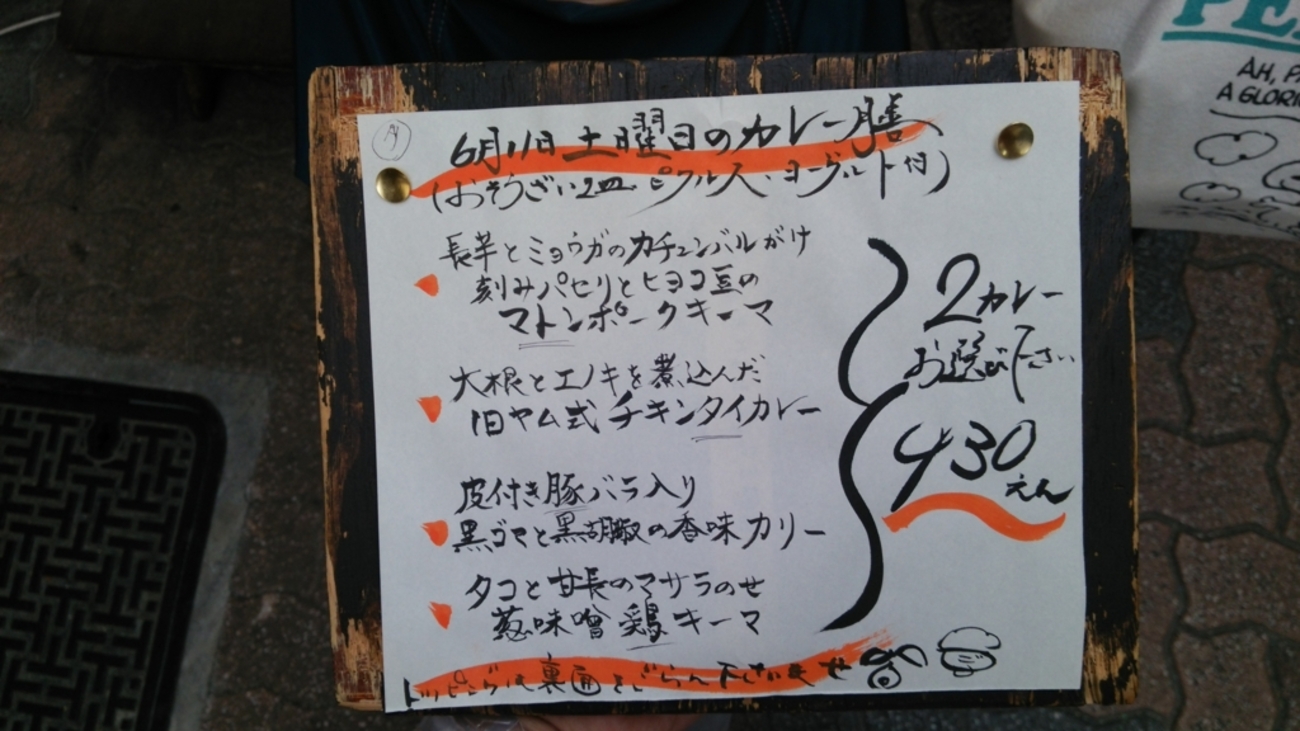 夕
6月11日土曜日のカレー膳
(おそうざい2皿、ピクルス、ヨーグルト付)
長芋とミョウガのカチュンバルがけ
刻みパセリとヒヨコ豆の
マトンポークキーマ
大根とエノキを煮込んだ
旧ヤム式チキンタイカレー
皮付き豚バラ入り
黒ゴマと黒胡椒の香味カリー
タコと甘長のマサラのせ
葱味噌鶏キーマ
2カレー
お選び下さい
930
えん
トッピングは裏面をごらん下さいませ
PE
AH, P
A GLORI